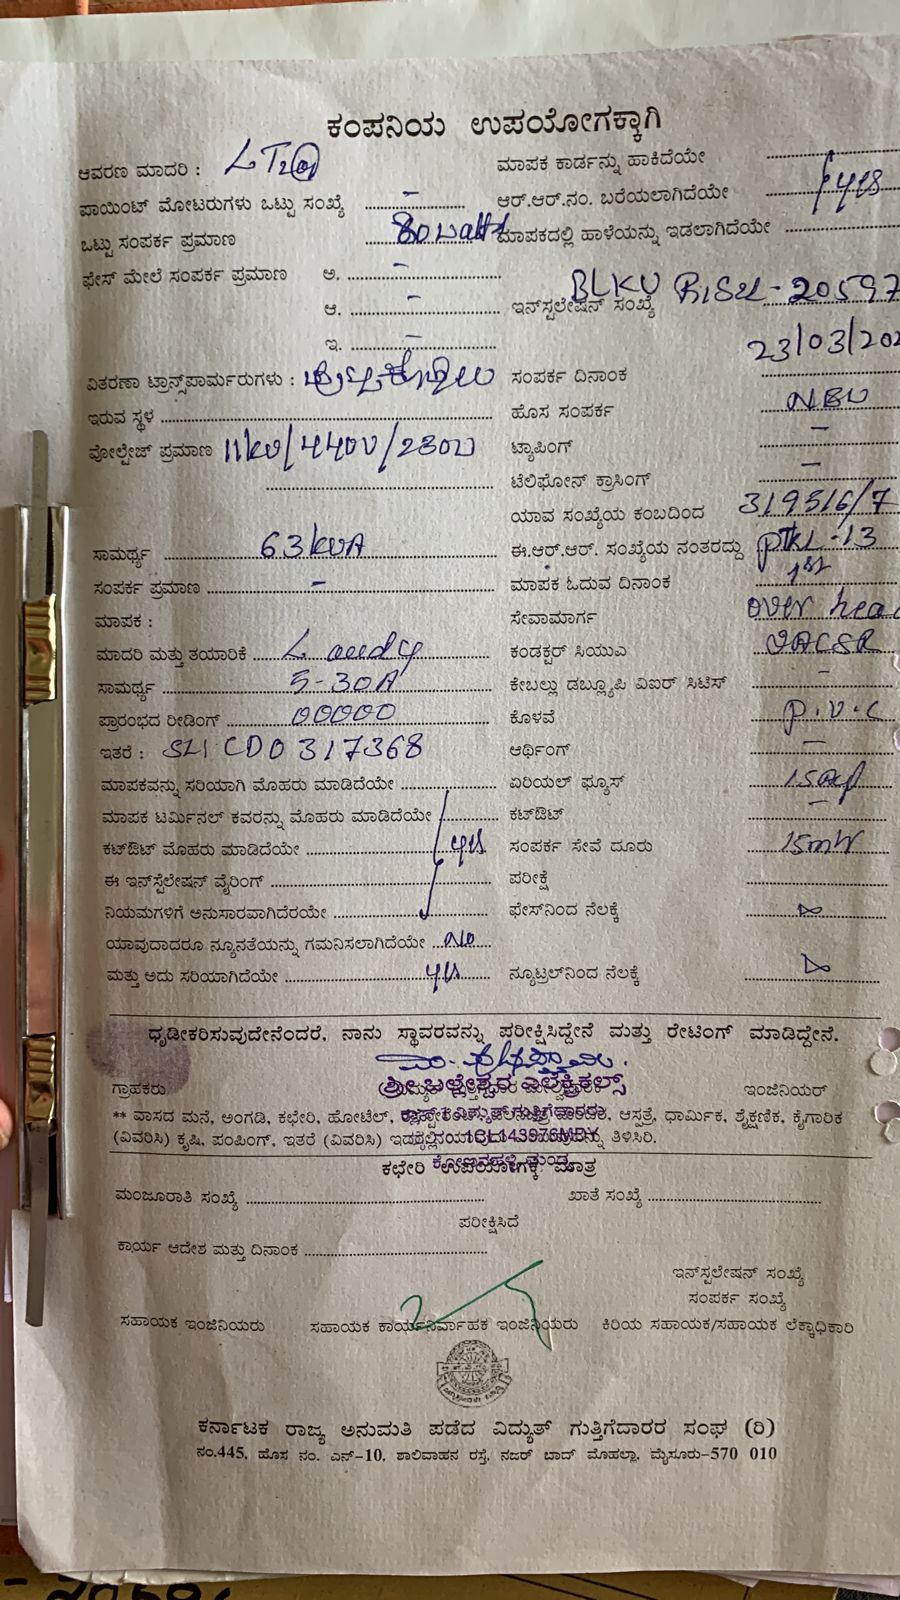 ಕಂಪನಿಯ ಉಪಯೋಗಕ್ಕಾಗಿ
ಆವರಣ ಮಾದರಿ : LT2(a) ಮಾಪಕ ಕಾರ್ಡನ್ನು ಹಾಕಿದೆಯೇ
ಪಾಯಿಂಟ್ ಮೋಟರುಗಳು ಒಟ್ಟು ಸಂಖ್ಯೆ - ಆರ್.ಆರ್.ನಂ. ಬರೆಯಲಾಗಿದೆಯೇ yes
ಒಟ್ಟು ಸಂಪರ್ಕ ಪ್ರಮಾಣ 80 watts ಮಾಪಕದಲ್ಲಿ ಹಾಳೆಯನ್ನು ಇಡಲಾಗಿದೆಯೇ
ಫೇಸ್ ಮೇಲೆ ಸಂಪರ್ಕ ಪ್ರಮಾಣ ಅ. -
ಆ. - ಇನ್‌ಸ್ಪಲೇಷನ್ ಸಂಖ್ಯೆ BLKV 20597
ಇ. - 23/03/202
ವಿತರಣಾ ಟ್ರಾನ್ಸ್‌ಪಾರ್ಮರುಗಳು : ಸಂಪರ್ಕ ದಿನಾಂಕ
ಇರುವ ಸ್ಥಳ ಹೊಸ ಸಂಪರ್ಕ
ವೋಲ್ಟೇಜ್ ಪ್ರಮಾಣ 11kV/440V/230V ಟ್ಯಾಪಿಂಗ್ -
ಟೆಲಿಫೋನ್ ಕ್ರಾಸಿಂಗ್ -
ಯಾವ ಸಂಖ್ಯೆಯ ಕಂಬದಿಂದ 319516/7
ಸಾಮರ್ಥ್ಯ 63kVA ಈ.ಆರ್.ಆರ್. ಸಂಖ್ಯೆಯ ನಂತರದ್ದು PTKL-13
ಸಂಪರ್ಕ ಪ್ರಮಾಣ - ಮಾಪಕ ಓದುವ ದಿನಾಂಕ 1st
ಮಾಪಕ : ಸೇವಾಮಾರ್ಗ over hea
ಮಾದರಿ ಮತ್ತು ತಯಾರಿಕೆ ಕಂಡಕ್ಟರ್ ಸಿಯುಎ
ಸಾಮರ್ಥ್ಯ 5-30A ಕೇಬಲ್ಲು ಡಬ್ಲ್ಯೂಪಿ ವಿಐಆರ್ ಸಿಟಿಸ್ -
ಪ್ರಾರಂಭದ ರೀಡಿಂಗ್ 00000 ಕೊಳವೆ P.V.C
ಇತರೆ : 317368 ಆರ್ಥಿಂಗ್ -
ಮಾಪಕವನ್ನು ಸರಿಯಾಗಿ ಮೊಹರು ಮಾಡಿದೆಯೇ ಏರಿಯಲ್ ಫ್ಯೂಸ್
ಮಾಪಕ ಟರ್ಮಿನಲ್ ಕವರನ್ನು ಮೊಹರು ಮಾಡಿದೆಯೇ ಕಟ್‌ಔಟ್ -
ಕಟ್‌ಔಟ್ ಮೊಹರು ಮಾಡಿದೆಯೇ yes ಸಂಪರ್ಕ ಸೇವೆ ದೂರು
ಈ ಇನ್‌ಸ್ಪೆಲೇಷನ್ ವೈರಿಂಗ್ ಪರೀಕ್ಷೆ
ನಿಯಮಗಳಿಗೆ ಅನುಸಾರವಾಗಿದೆರಯೇ ಫೇಸ್‌ನಿಂದ ನೆಲಕ್ಕೆ
ಯಾವುದಾದರೂ ನ್ಯೂನತೆಯನ್ನು ಗಮನಿಸಲಾಗಿದೆಯೇ No
ಮತ್ತು ಅದು ಸರಿಯಾಗಿದೆಯೇ yes ನ್ಯೂಟ್ರಲ್‌ನಿಂದ ನೆಲಕ್ಕೆ
ಧೃಡೀಕರಿಸುವುದೇನೆಂದರೆ, ನಾನು ಸ್ಥಾವರವನ್ನು ಪರೀಕ್ಷಿಸಿದ್ದೇನೆ ಮತ್ತು ರೇಟಿಂಗ್ ಮಾಡಿದ್ದೇನೆ.
ಗ್ರಾಹಕರು ಇಂಜಿನಿಯರ್
** ವಾಸದ ಮನೆ, ಅಂಗಡಿ, ಕಛೇರಿ, ಹೋಟೆಲ್, ಆಸ್ಪತ್ರೆ, ಧಾರ್ಮಿಕ, ಶೈಕ್ಷಣಿಕ, ಕೈಗಾರಿಕೆ
(ವಿವರಿಸಿ) ಕೃಷಿ, ಪಂಪಿಂಗ್, ಇತರೆ (ವಿವರಿಸಿ) ತಿಳಿಸಿರಿ.
ಕಛೇರಿ ಉಪಯೋಗಕ್ಕೆ ಮಾತ್ರ
ಮಂಜೂರಾತಿ ಸಂಖ್ಯೆ ಖಾತೆ ಸಂಖ್ಯೆ
ಪರೀಕ್ಷಿಸಿದೆ
ಕಾರ್ಯ ಆದೇಶ ಮತ್ತು ದಿನಾಂಕ
ಇನ್‌ಸ್ಪಲೇಷನ್ ಸಂಖ್ಯೆ
ಸಂಪರ್ಕ ಸಂಖ್ಯೆ
ಸಹಾಯಕ ಇಂಜಿನಿಯರು ಸಹಾಯಕ ಕಾರ್ಯನಿರ್ವಾಹಕ ಇಂಜಿನಿಯರು ಕಿರಿಯ ಸಹಾಯಕ/ಸಹಾಯಕ ಲೆಕ್ಕಾಧಿಕಾರಿ
ಕರ್ನಾಟಕ ರಾಜ್ಯ ಅನುಮತಿ ಪಡೆದ ವಿದ್ಯುತ್ ಗುತ್ತಿಗೆದಾರರ ಸಂಘ (ರಿ)
ನಂ.445, ಹೊಸ ನಂ. ಎನ್-10, ಶಾಲಿವಾಹನ ರಸ್ತೆ, ನಜರ್ ಬಾದ್ ಮೊಹಲ್ಲಾ, ಮೈಸೂರು-570 010